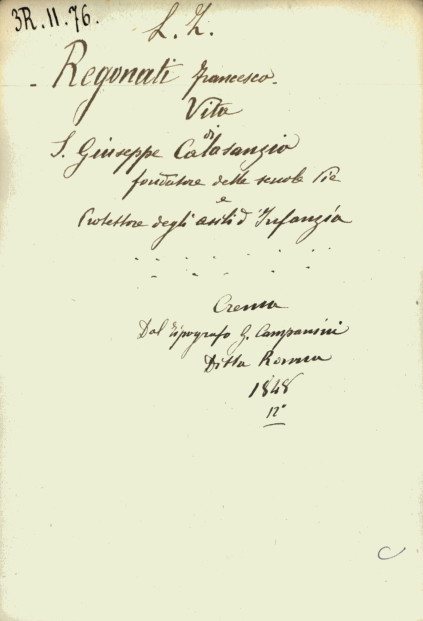 3R.11.76.
L. Z.
Regonati Francesco.
Vita
di
S. Giuseppe Calasanzio
fondatore delle scuole Pie
e
Protettore degli asili d'Infanzia
Crema
Dal Tipografo G. Campanini
Ditta Ronna
1848
12°